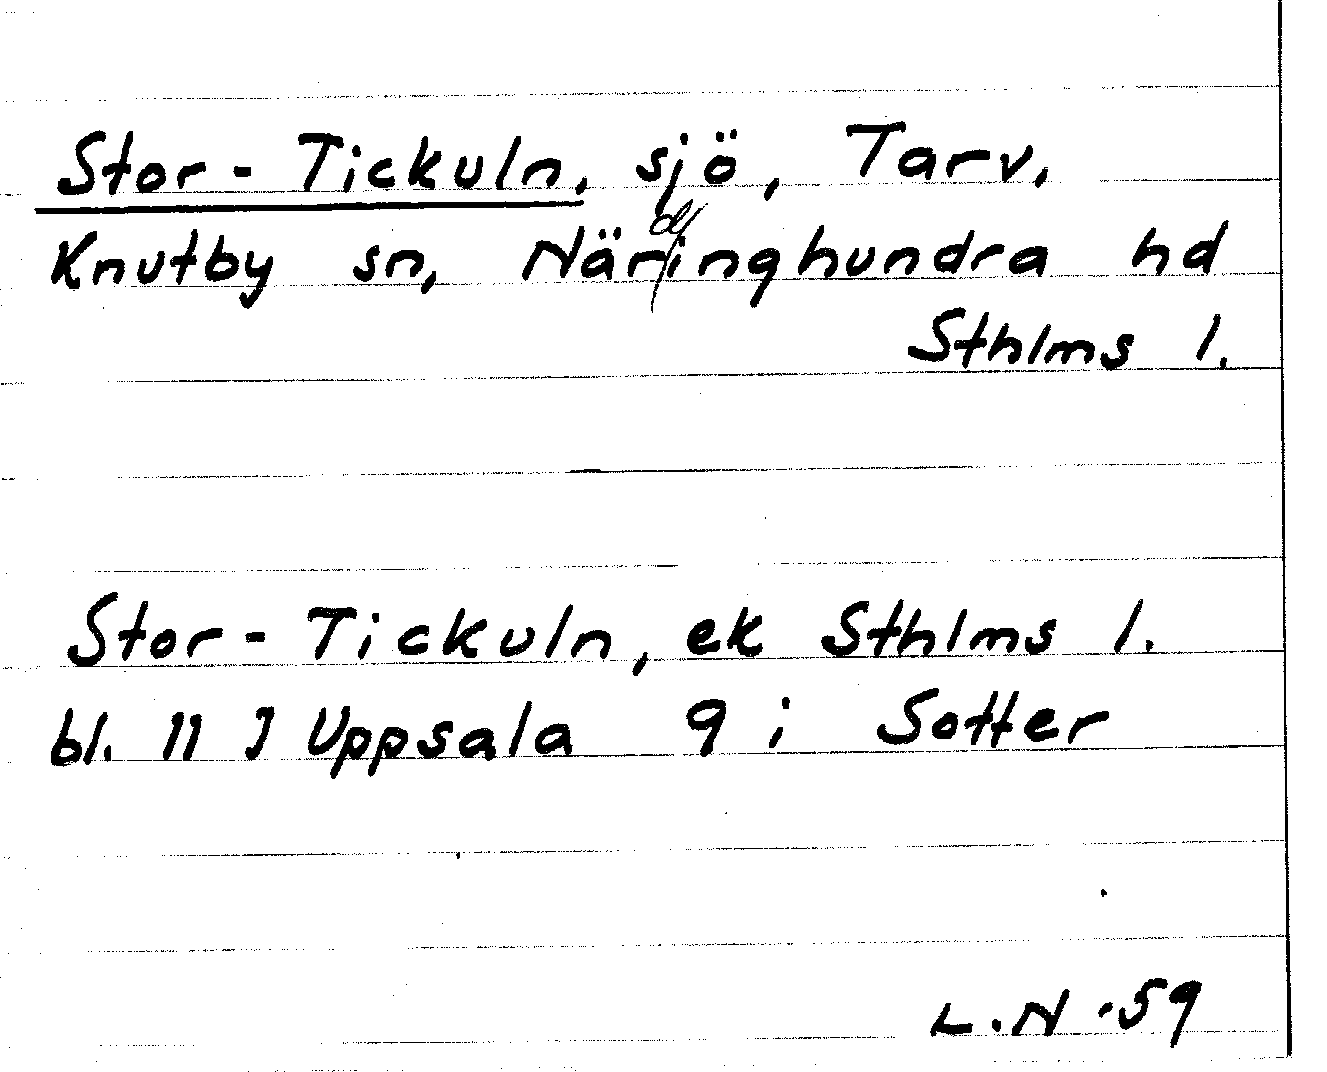 Stor-Tickuln, sjö, Tarv,
Knutby sn, Närdinghundra hd
Sthlms l.
Stor-Tickuln, ek Sthlms l.
bl. 11 J Uppsala 9 i Sotter
L.N. 59